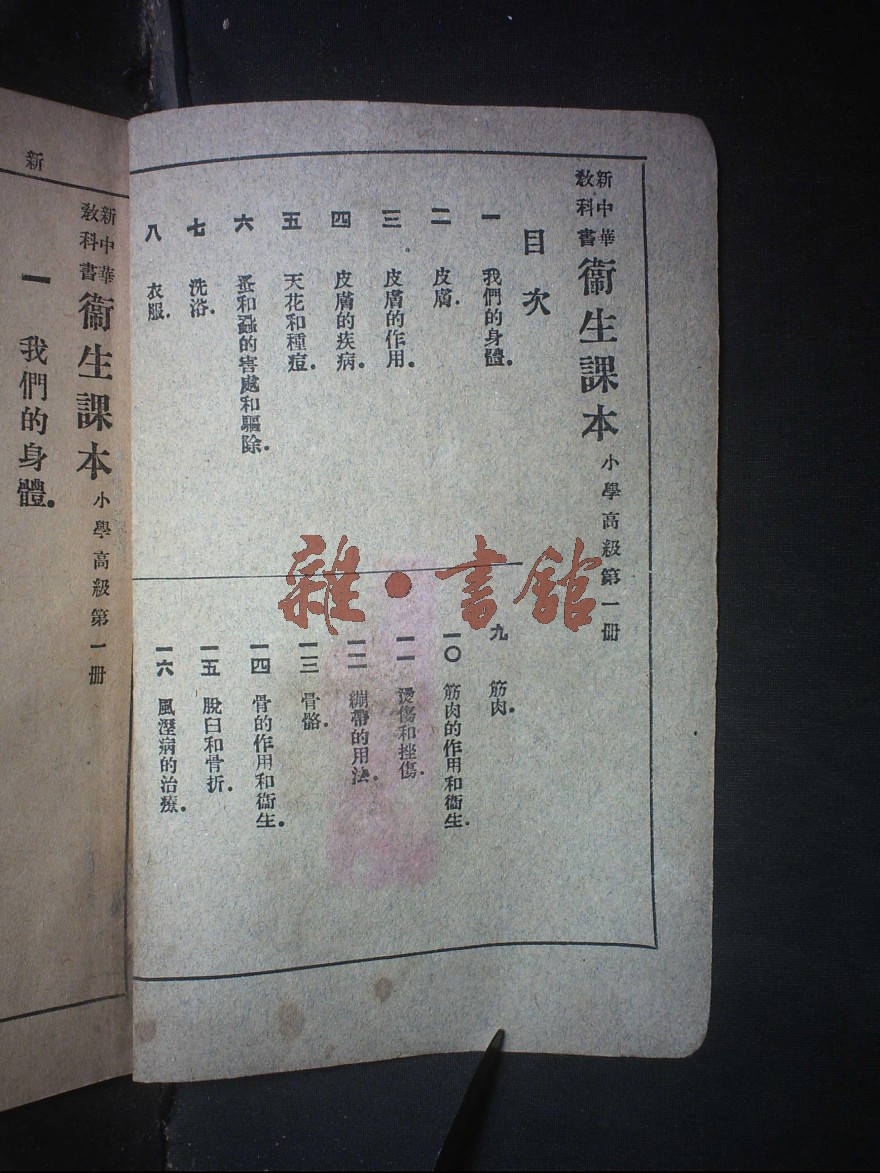 新中華教科書 衞生課本 小學高級第一册
目次
一 我們的身體.
二 皮膚.
三 皮膚的作用.
四 皮膚的疾病.
五 天花和種痘.
六 蚤和蝨的害處和驅除.
七 洗浴.
八 衣服.
九 筋肉.
一〇 筋肉的作用和衞生.
一一 燙傷和挫傷.
一二 綳帶的用法.
一三 骨骼.
一四 骨的作用和衞生.
一五 脫臼和骨折.
一六 風溼病的治療.
雜·書館
新
新中華教科書 衞生課本 小學高級第一册
一 我們的身體.